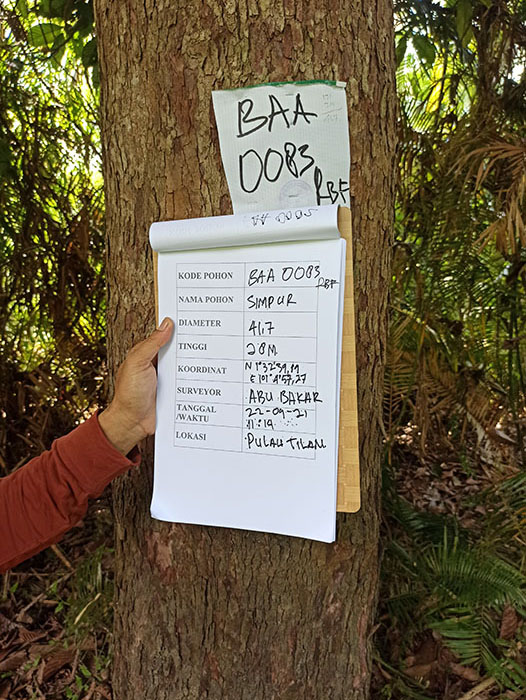 BAA
0083
RBF
KODE POHON BAA 0083 RBF
NAMA POHON SIMPUR
DIAMETER 41,7
TINGGI 28M
KOORDINAT N 1°32'39,
E 101°4'57,27
SURVEYOR ABU BAKAR
TANGGAL 22-09-21
/WAKTU 11:19
LOKASI PULAU TILAN